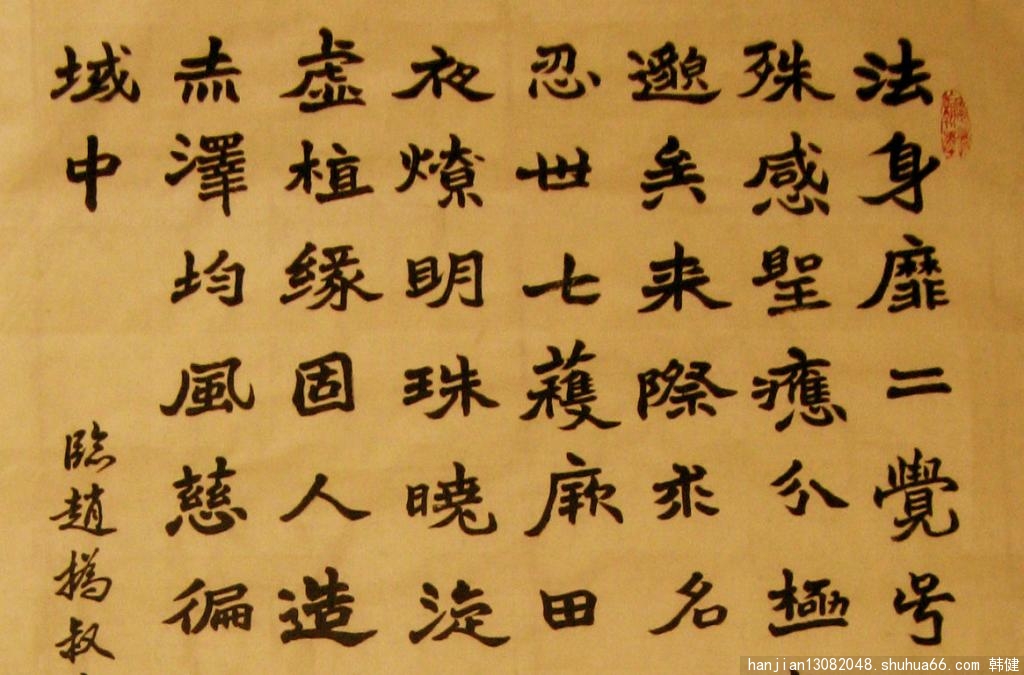 法身靡二覺号
殊感聖應分極
邈矣来際求名
忍世七蘐厥田
夜燎明珠曉淀
虛植緣固人造
赤澤均風慈徧
域中
臨趙撝叔
hanjian13082048.shuhua66.com 韩健